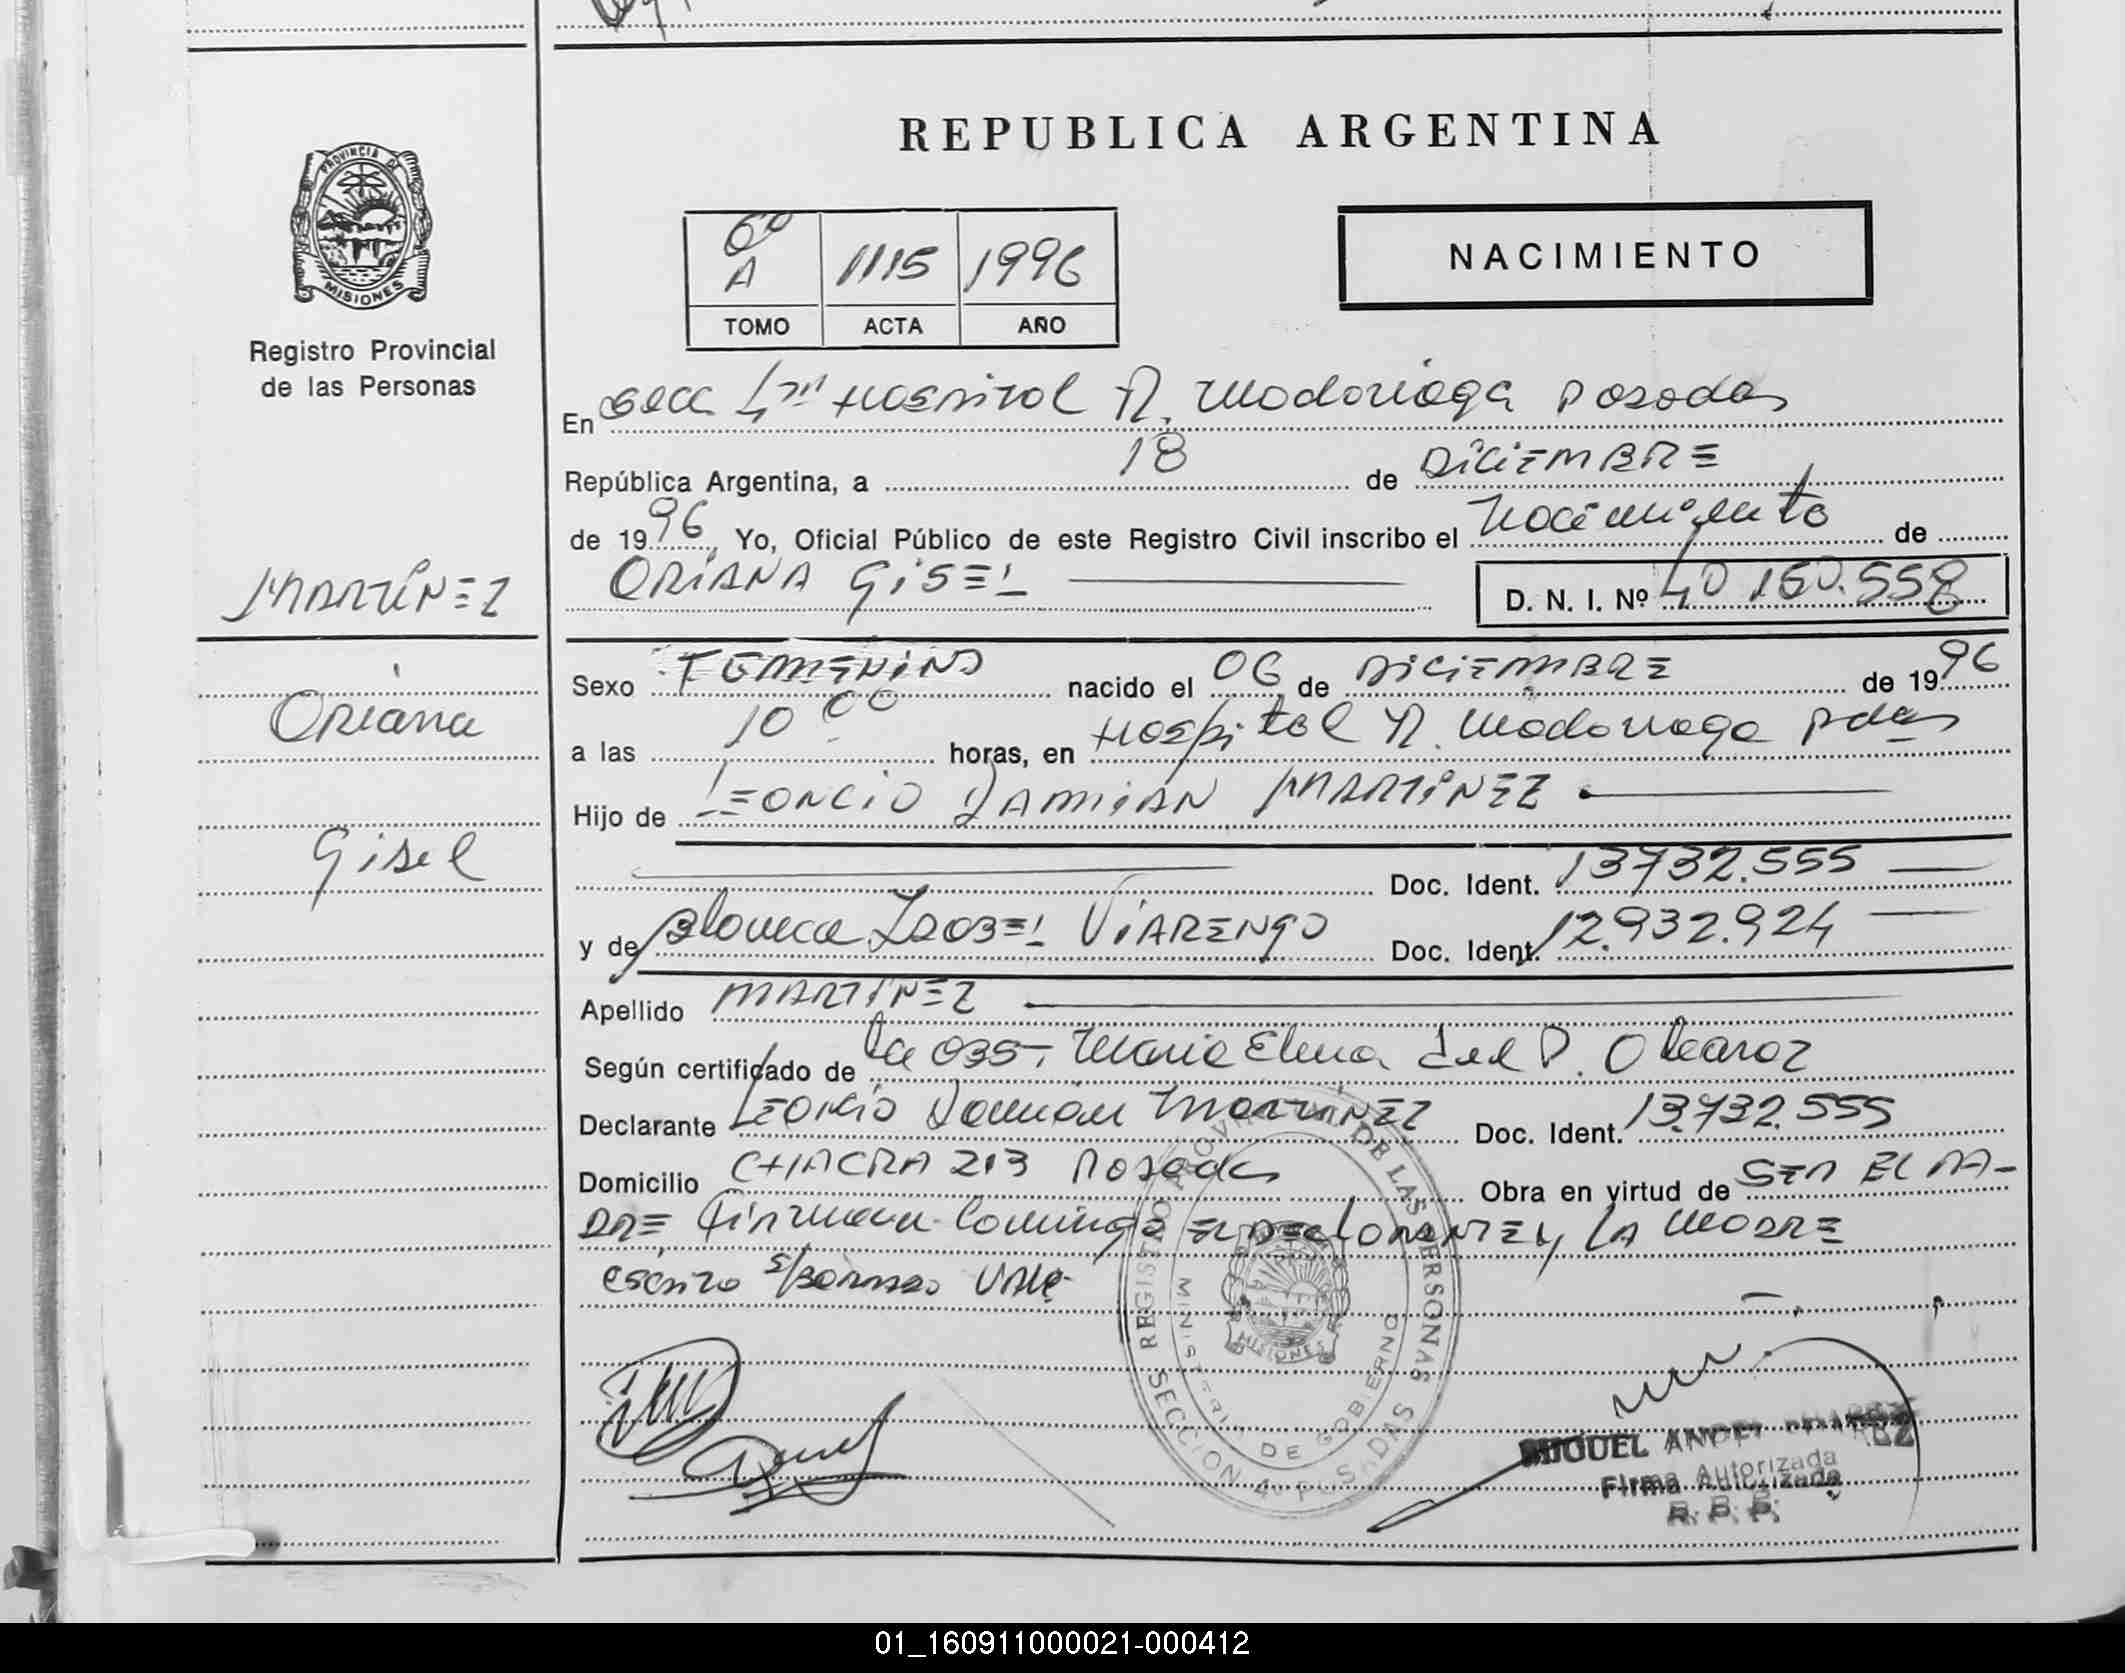 REPUBLICA ARGENTINA
PROVINCIA DE
MISIONES
Registro Provincial
de las Personas
6º
A 1115 1996
TOMO ACTA AÑO
NACIMIENTO
En Secc 4ta Hospital R. Madariaga Posadas
República Argentina, a 18 de DICIEMBRE
de 1996, Yo, Oficial Público de este Registro Civil inscribo el Nacimiento de
ORIANA GISEL D. N. I. Nº 40.150.558
MARTÍNEZ
Oriana
Gisel
Sexo FEMENINO nacido el 06 de DICIEMBRE de 1996
a las 10 00 horas, en Hospital R. Madariaga Pdas
Hijo de LEONCIO DAMIAN MARTINEZ
Doc. Ident. 13.732.555
y de Blanca ISABEL VIARENGO Doc. Ident. 12.932.924
Apellido MARTINEZ
Según certificado de la OBST. Maria Elena del P. Olearoz
Declarante LEONCIO Damian MARTINEZ Doc. Ident. 13.732.555
Domicilio CHACRA 213 Posadas Obra en virtud de SER EL PA-
DRE Firman EL DECLARANTE Y LA MADRE
escrito s/BORRADO VALE
REGISTRO PROVINCIAL DE LAS PERSONAS
MINISTERIO DE GOBIERNO
MISIONES
SECCION 4ª POSADAS
MIGUEL ANGEL
Firma Autorizada
01_160911000021-000412